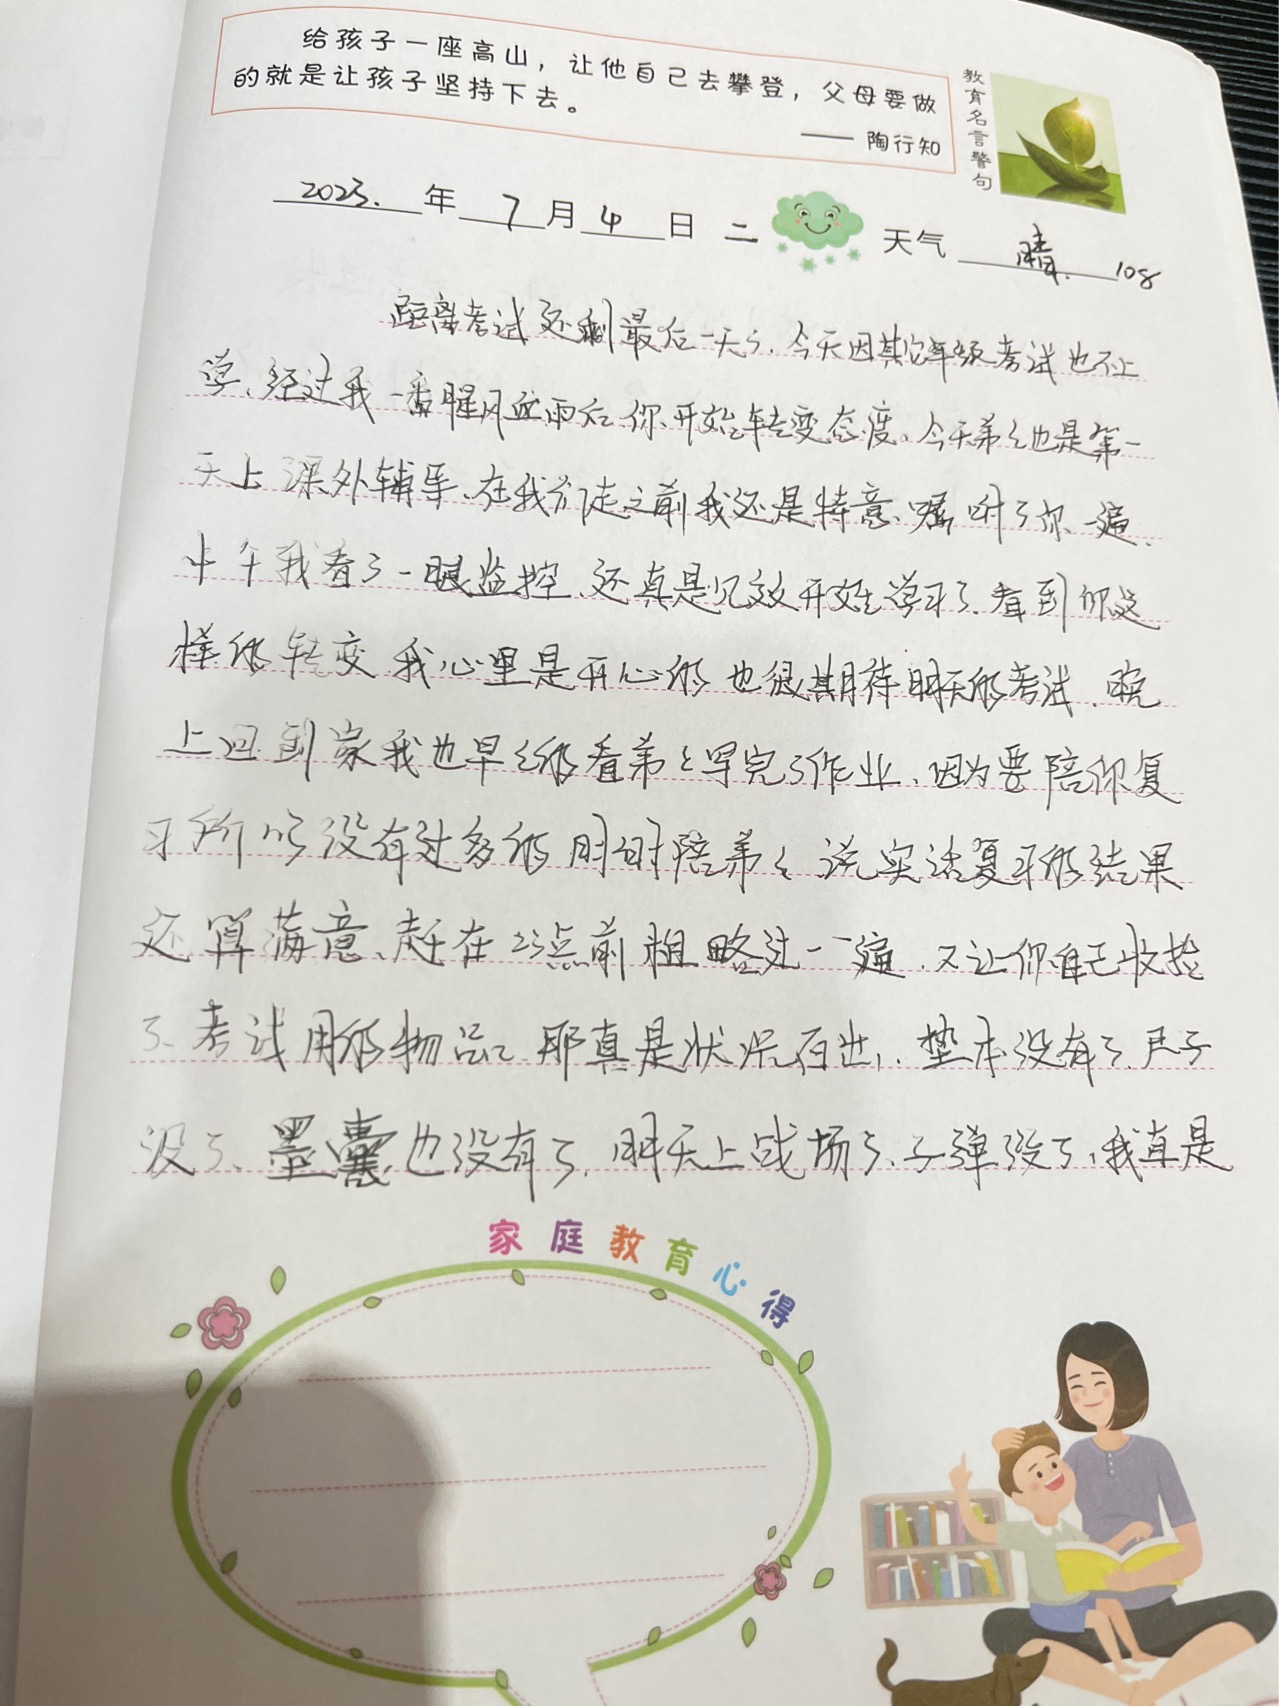 给孩子一座高山，让他自己去攀登，父母要做
的就是让孩子坚持下去。
—— 陶行知
教育名言警句
2023. 年 7 月 4 日 二 天气 晴. 108
距离考试还剩最后一天了.今天因其它年级考试也不上
学、经过我一番腥风血雨后你开始转变态度、今天弟弟也是第一
天上课外辅导、在我们走之前我还是特意嘱咐了你一遍.
中午我看了一眼监控、还真是见效开始学习了.看到你这
样的转变我心里是开心的也很期待明天的考试.晚
上回到家我也早早的看弟弟写完了作业、因为要陪你复
习所以没有过多的时间陪弟弟 说实话复习的结果
还算满意、赶在23点前粗略过一遍.又让你自己收捡
了、考试用的物品、那真是状况百出，.垫本没有了.尺子
没了、墨囊也没有了.明天上战场了、子弹没了，我真是
家庭教育心得